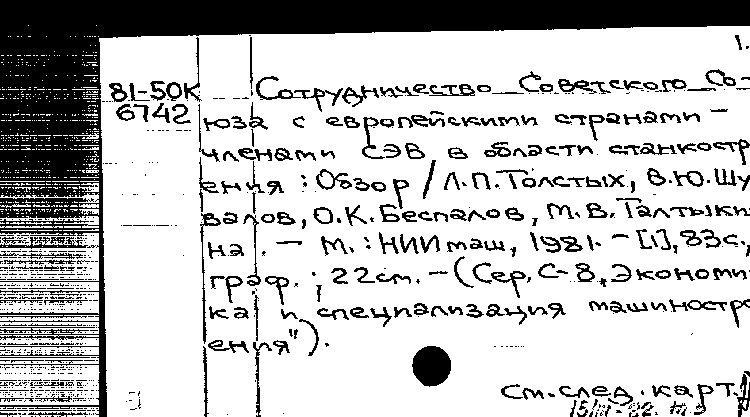 1.
81-50К Сотрудничество Советского Со-
6742 юза с европейскими странами -
членами СЭВ в области станкостр
ения : Обзор / Л.П.Толстых, В.Ю.Шу
валов, О.К.Беспалов, М.В.Талтыки
на . - М. : НИИмаш, 1981. - [1], 83с.,
граф. ; 22см. - (Сер. С-8, Экономи
ка и специализация машиностро
ения").
См.след.карт.